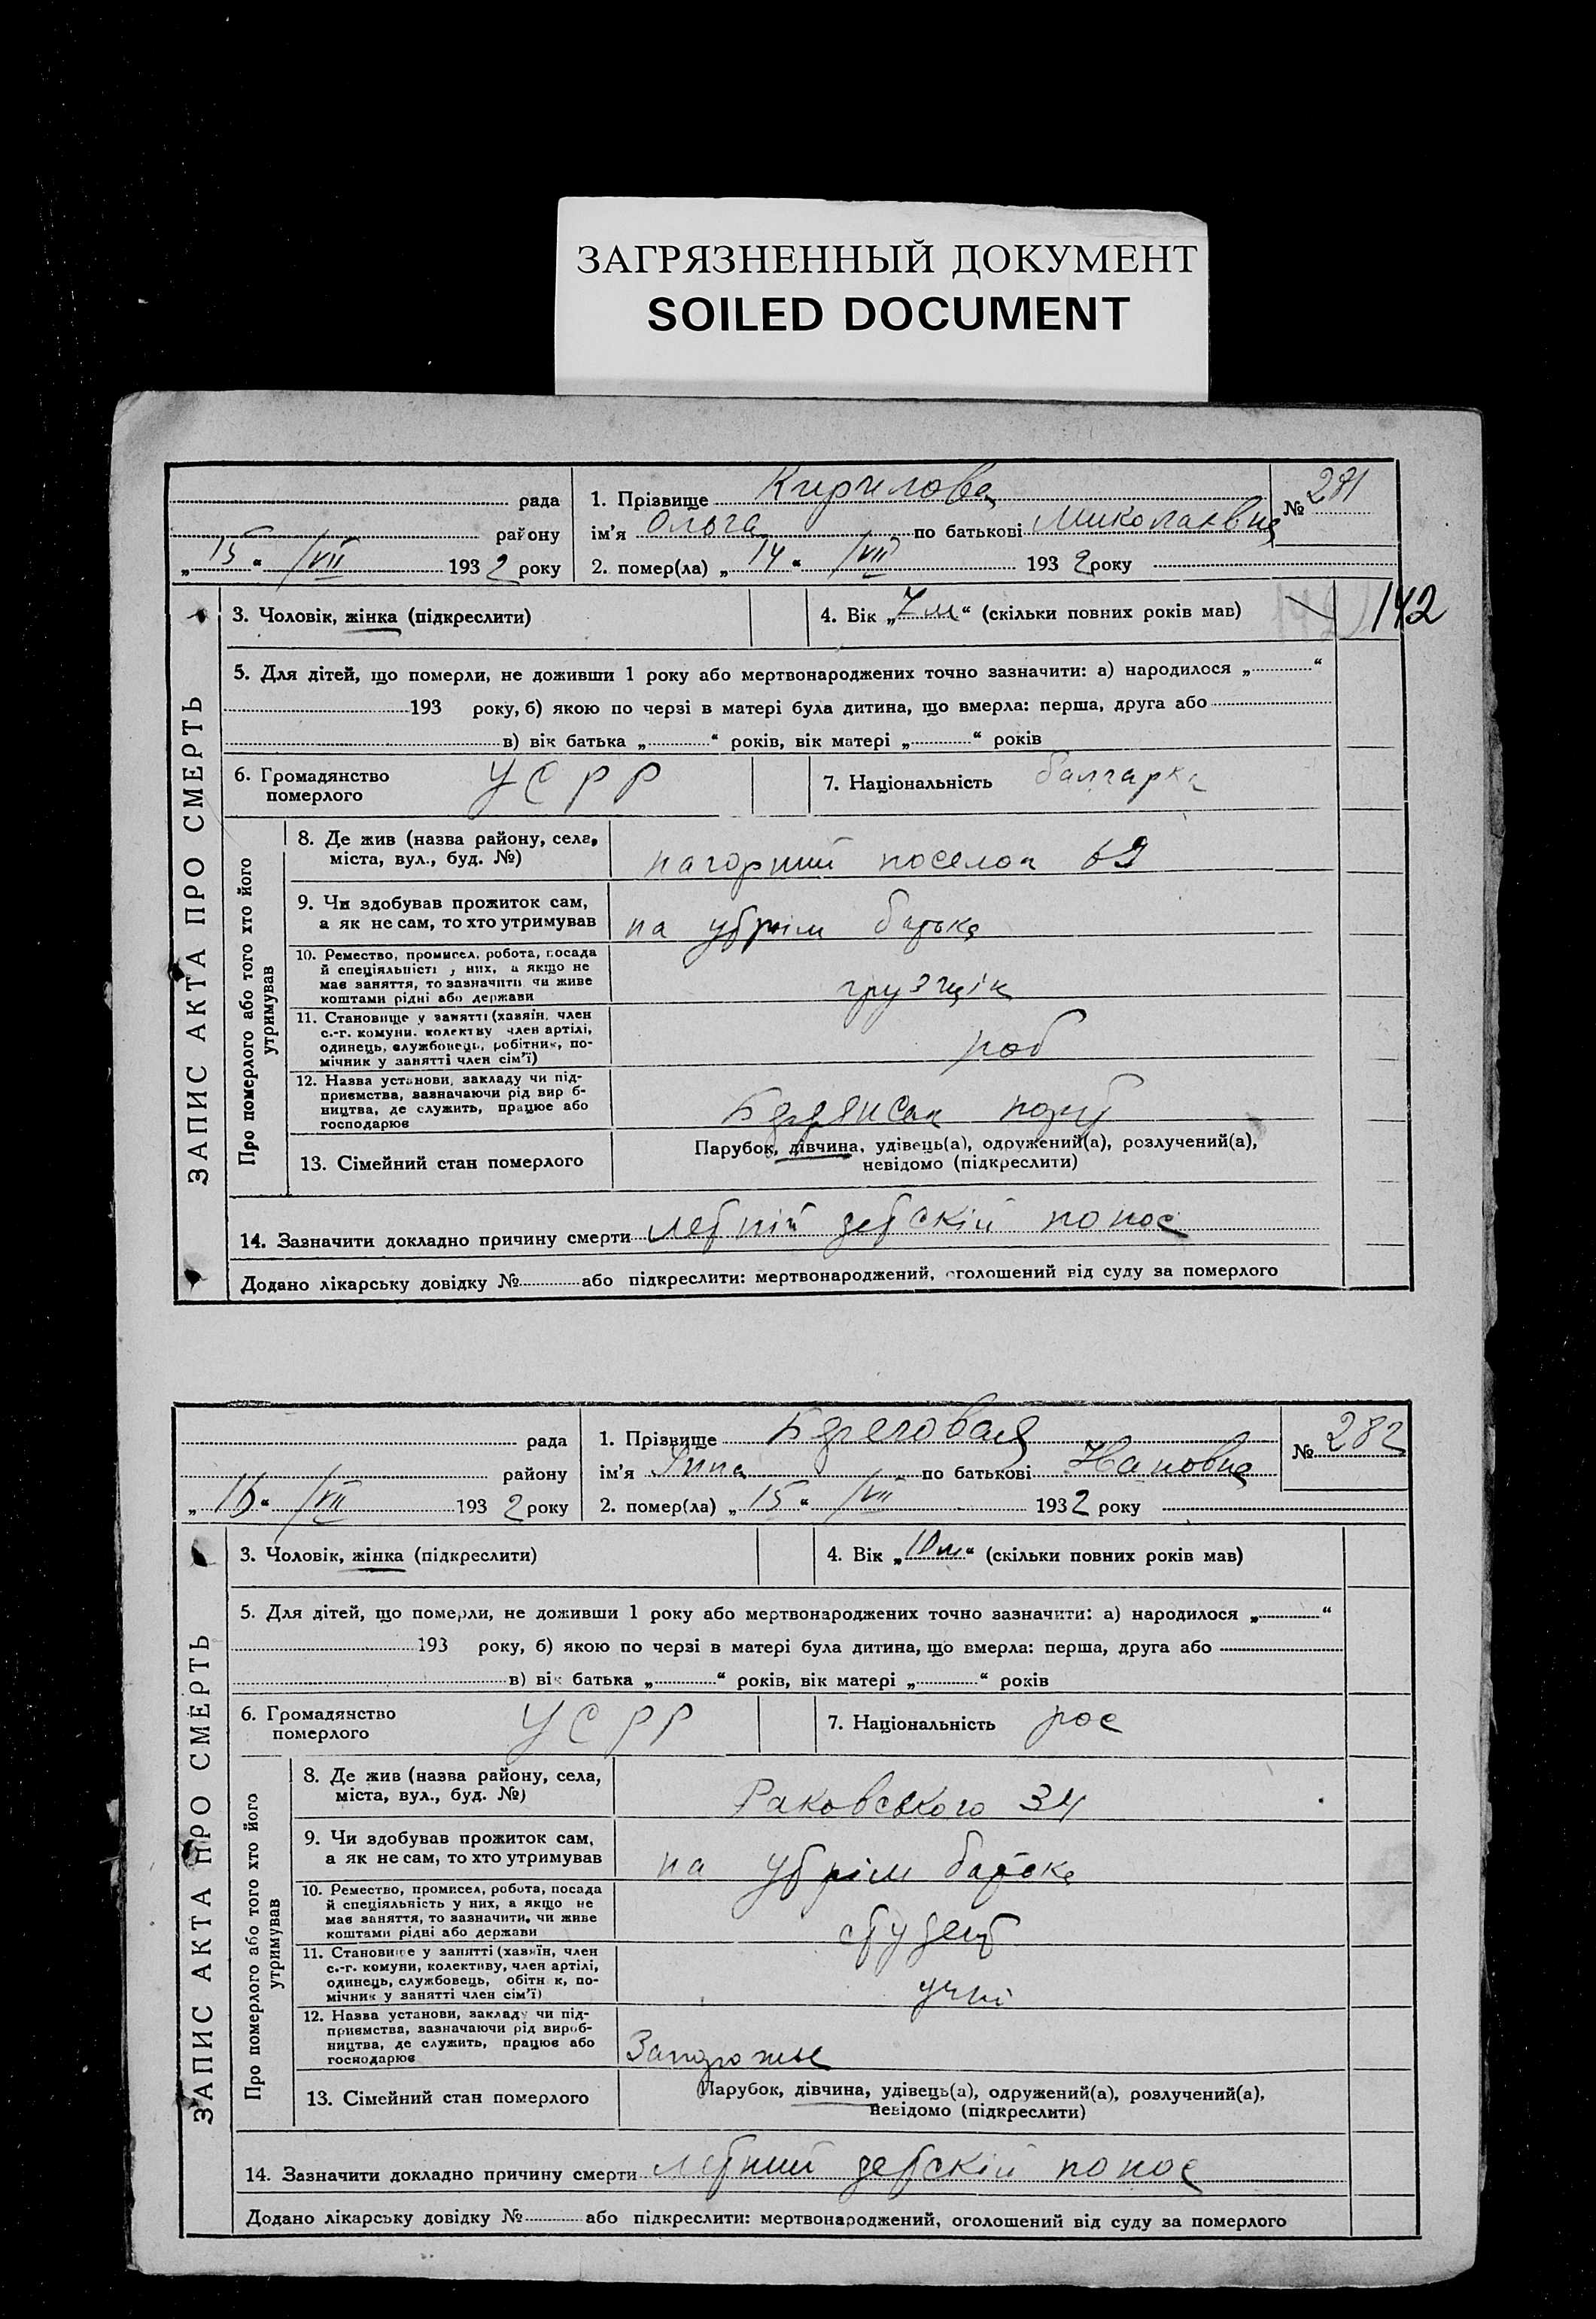 ЗАГРЯЗНЕННЫЙ ДОКУМЕНТ
SOILED DOCUMENT
рада
1. Прізвище Кирилова
№ 281
району
ім'я Ольга по батькові Миколаевна
„15“ /VII 1932 року
2. помер(ла) „14“ /VII 1932 року
ЗАПИС АКТА ПРО СМЕРТЬ
3. Чоловік, жінка (підкреслити)
4. Вік „7 м“ (скільки повних років мав)
142
5. Для дітей, що померли, не доживши 1 року або мертвонароджених точно зазначити: а) народилося „ “
193 року, б) якою по черзі в матері була дитина, що вмерла: перша, друга або
в) вік батька „ “ років, вік матері „ “ років
6. Громадянство
померлого
УСРР
7. Національність болгарка
Про померлого або того хто його
утримував
8. Де жив (назва району, села,
міста, вул., буд. №)
нагорний поселок 69
9. Чи здобував прожиток сам,
а як не сам, то хто утримував
на утрім батька
10. Ремество, промисел, робота, посада
й спеціяльність у них, а якщо не
має заняття, то зазначити чи живе
коштами рідні або держави
грузчік
11. Становище у занятті (хазяїн, член
с.-г. комуни, колективу член артілі,
одинець, службовець, робітник, по-
мічник у занятті член сім'ї)
роб
12. Назва установи, закладу чи під-
приємства, зазначаючи рід вироб-
ництва, де служить, працює або
господарює
Бердянськ порт
13. Сімейний стан померлого
Парубок, дівчина, удівець(а), одружений(а), розлучений(а),
невідомо (підкреслити)
14. Зазначити докладно причину смерти летній детскій понос
Додано лікарську довідку № або підкреслити: мертвонароджений, оголошений від суду за померлого
рада
1. Прізвище Береговая
№ 282
району
ім'я по батькові
„16“ /VII 1932 року
2. помер(ла) „15“ /VII 1932 року
ЗАПИС АКТА ПРО СМЕРТЬ
3. Чоловік, жінка (підкреслити)
4. Вік „10 м“ (скільки повних років мав)
5. Для дітей, що померли, не доживши 1 року або мертвонароджених точно зазначити: а) народилося „ “
193 року, б) якою по черзі в матері була дитина, що вмерла: перша, друга або
в) вік батька „ “ років, вік матері „ “ років
6. Громадянство
померлого
УСРР
7. Національність рос
Про померлого або того хто його
утримував
8. Де жив (назва району, села,
міста, вул., буд. №)
Раковського 34
9. Чи здобував прожиток сам,
а як не сам, то хто утримував
на утрім батька
10. Ремество, промисел, робота, посада
й спеціяльність у них, а якщо не
має заняття, то зазначити, чи живе
коштами рідні або держави
студент
11. Становище у занятті (хазяїн, член
с.-г. комуни, колективу, член артілі,
одинець, службовець, робітник, по-
мічник у занятті член сім'ї)
учні
12. Назва установи, закладу чи під-
приємства, зазначаючи рід вироб-
ництва, де служить, працює або
господарює
Запорожье
13. Сімейний стан померлого
Парубок, дівчина, удівець(а), одружений(а), розлучений(а),
невідомо (підкреслити)
14. Зазначити докладно причину смерти летний детскій понос
Додано лікарську довідку № або підкреслити: мертвонароджений, оголошений від суду за померлого